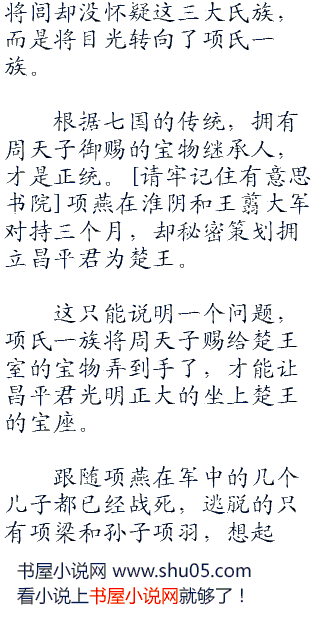 将闾却没怀疑这三大氏族，
而是将目光转向了项氏一
族。
根据七国的传统，拥有
周天子御赐的宝物继承人，
才是正统。[请牢记住有意思
书院]项燕在淮阴和王翦大军
对持三个月，却秘密策划拥
立昌平君为楚王。
这只能说明一个问题，
项氏一族将周天子赐给楚王
室的宝物弄到手了，才能让
昌平君光明正大的坐上楚王
的宝座。
跟随项燕在军中的几个
儿子都已经战死，逃脱的只
有项梁和孙子项羽，想起
书屋小说网 www.shu05.com
看小说上书屋小说网就够了！